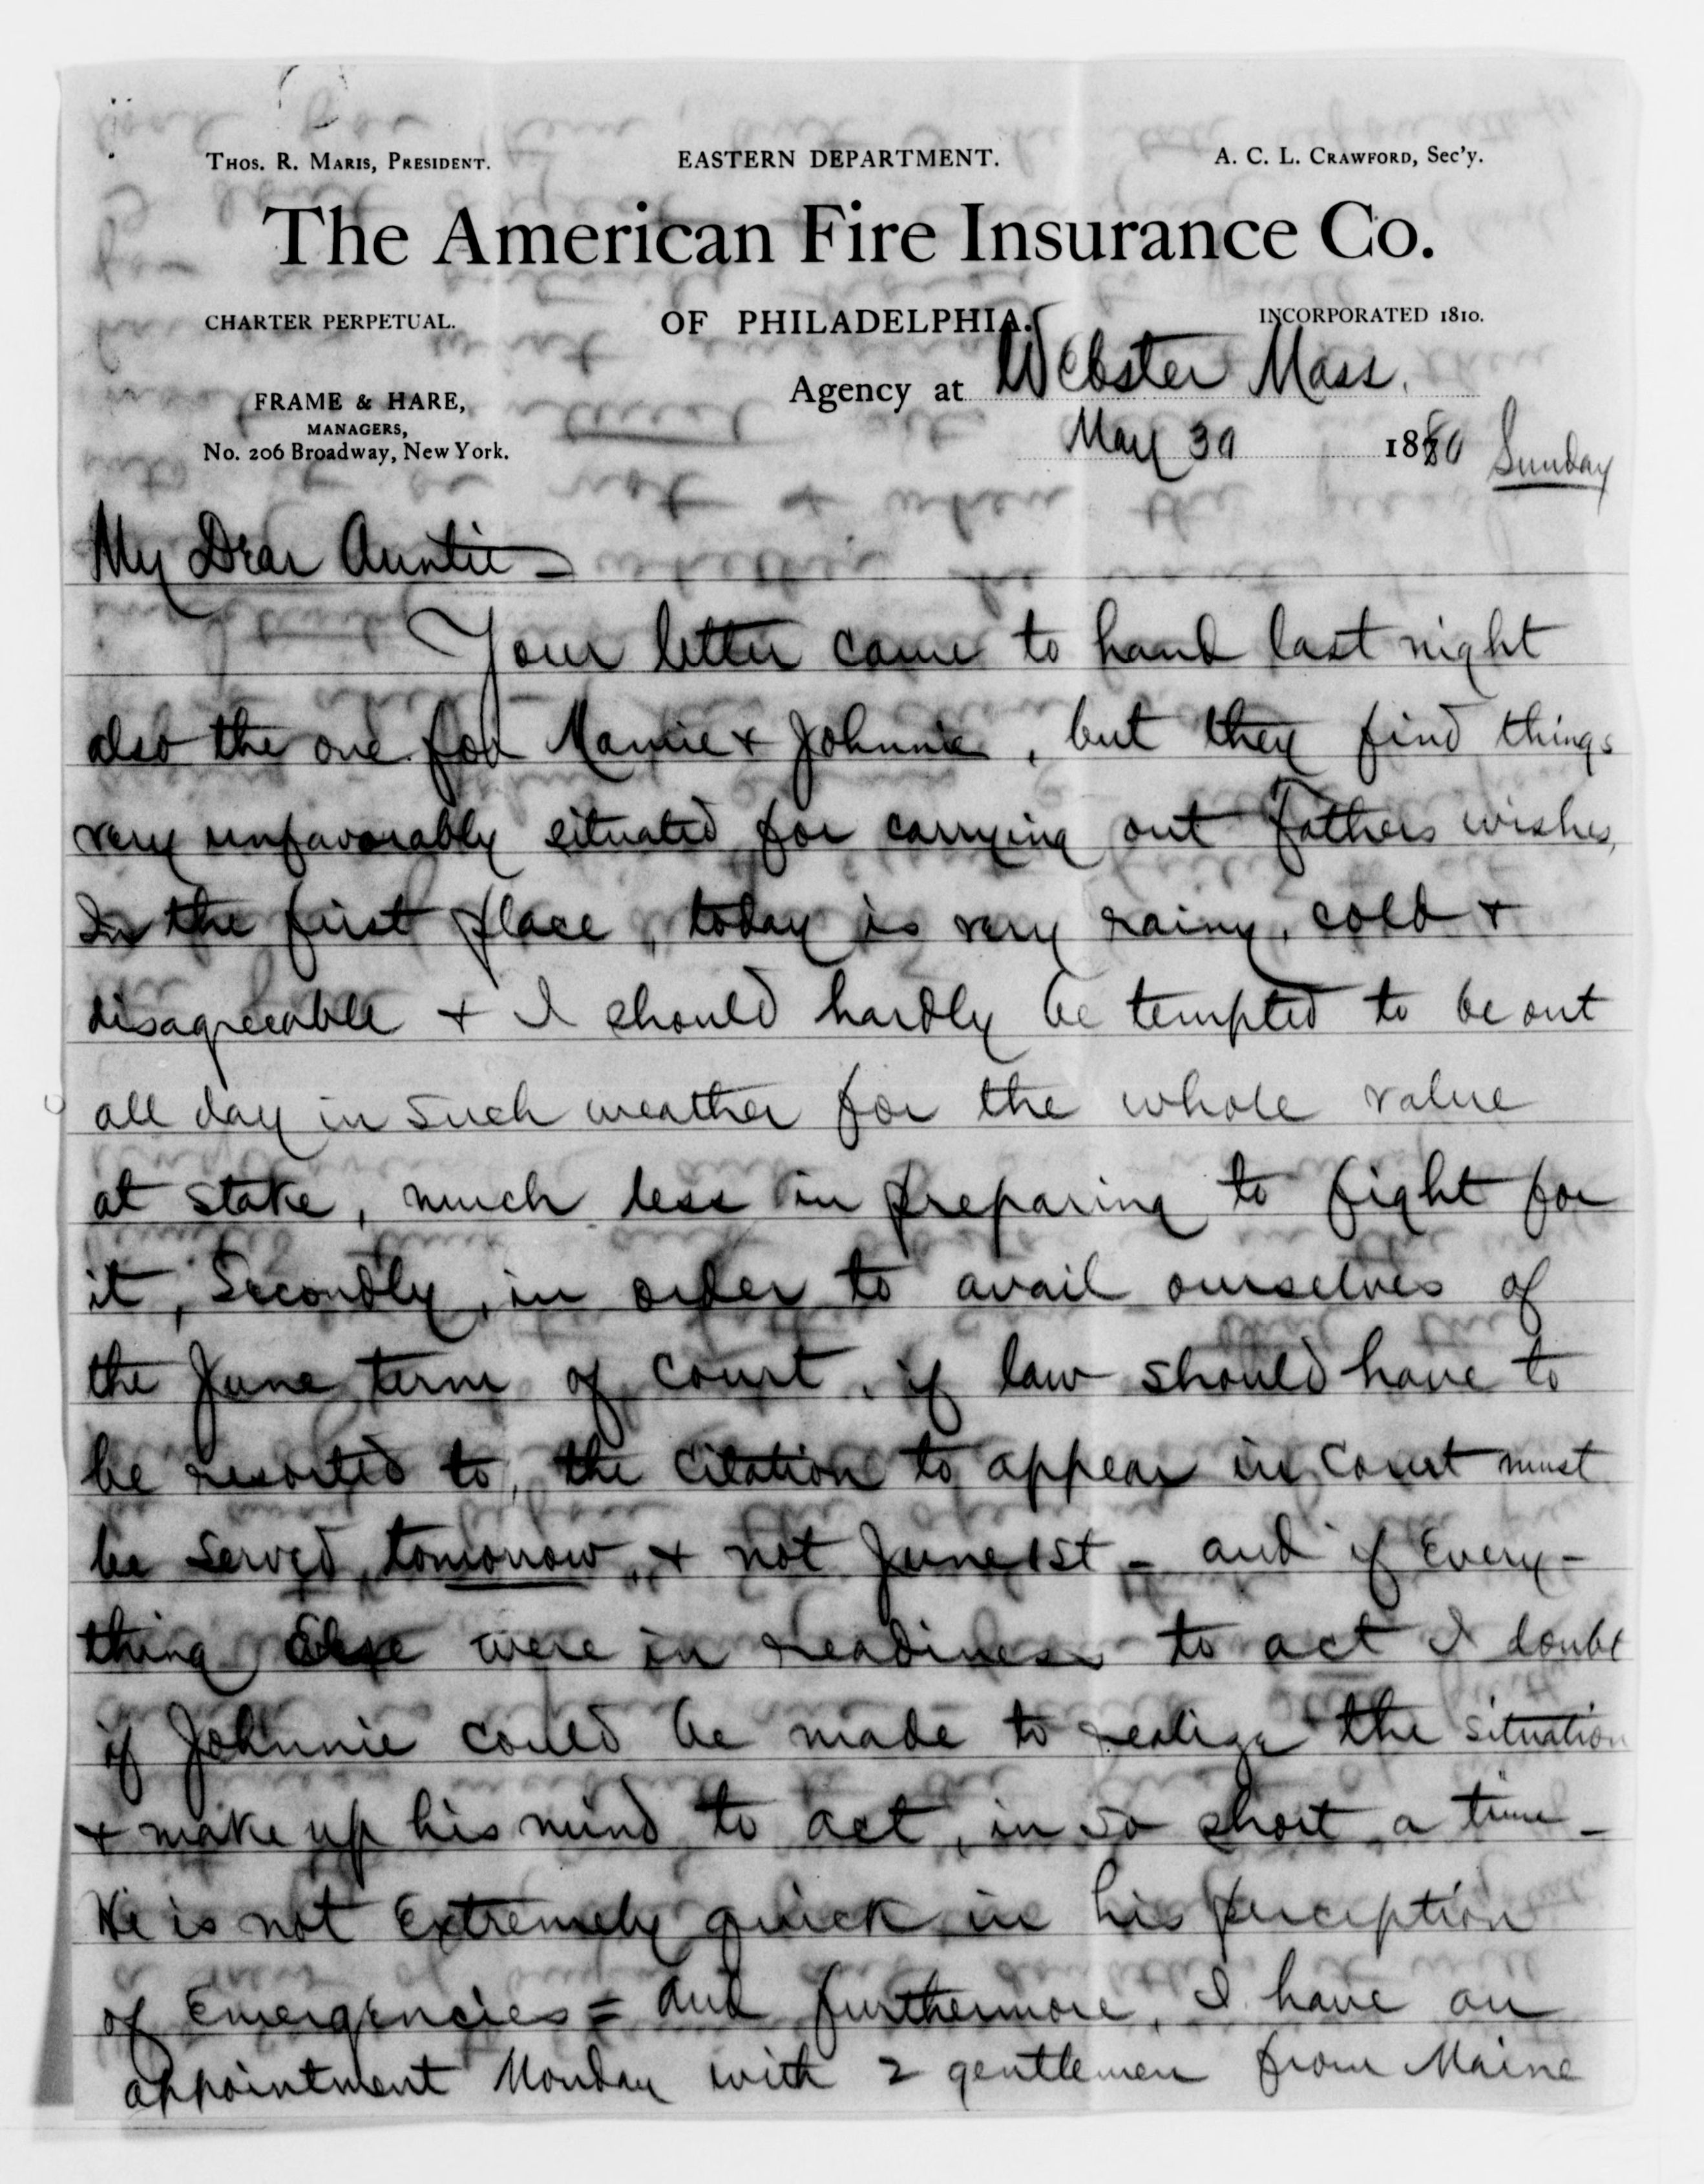 THOS. R. MARIS, PRESIDENT.
EASTERN DEPARTMENT.
A. C. L. CRAWFORD, Sec'y.
The American Fire Insurance Co.
CHARTER PERPETUAL.
OF PHILADELPHIA.
INCORPORATED 1810.
FRAME & HARE,
MANAGERS,
No. 206 Broadway, New York.
Agency at Webster Mass.
May 30 1880 Sunday
My Dear Auntie -
Your letter came to hand last night
also the one for Mamie & Johnnie, but they find things
very unfavorably situated for carrying out Fathers wishes,
In the first place, today is very rainy, cold &
disagreeable & I should hardly be tempted to be out
all day in such weather for the whole value
at stake, much less in preparing to fight for
it, Secondly, in order to avail ourselves of
the June term of court, if law should have to
be resorted to, the citation to appear in court must
be served tomorrow, & not June 1st - and if every-
thing else were in readiness to act I doubt
if Johnnie could be made to realize the situation
& make up his mind to act, in so short a time -
He is not extremely quick in his perception
of emergencies = and furthermore, I have an
appointment Monday with 2 gentlemen from Maine